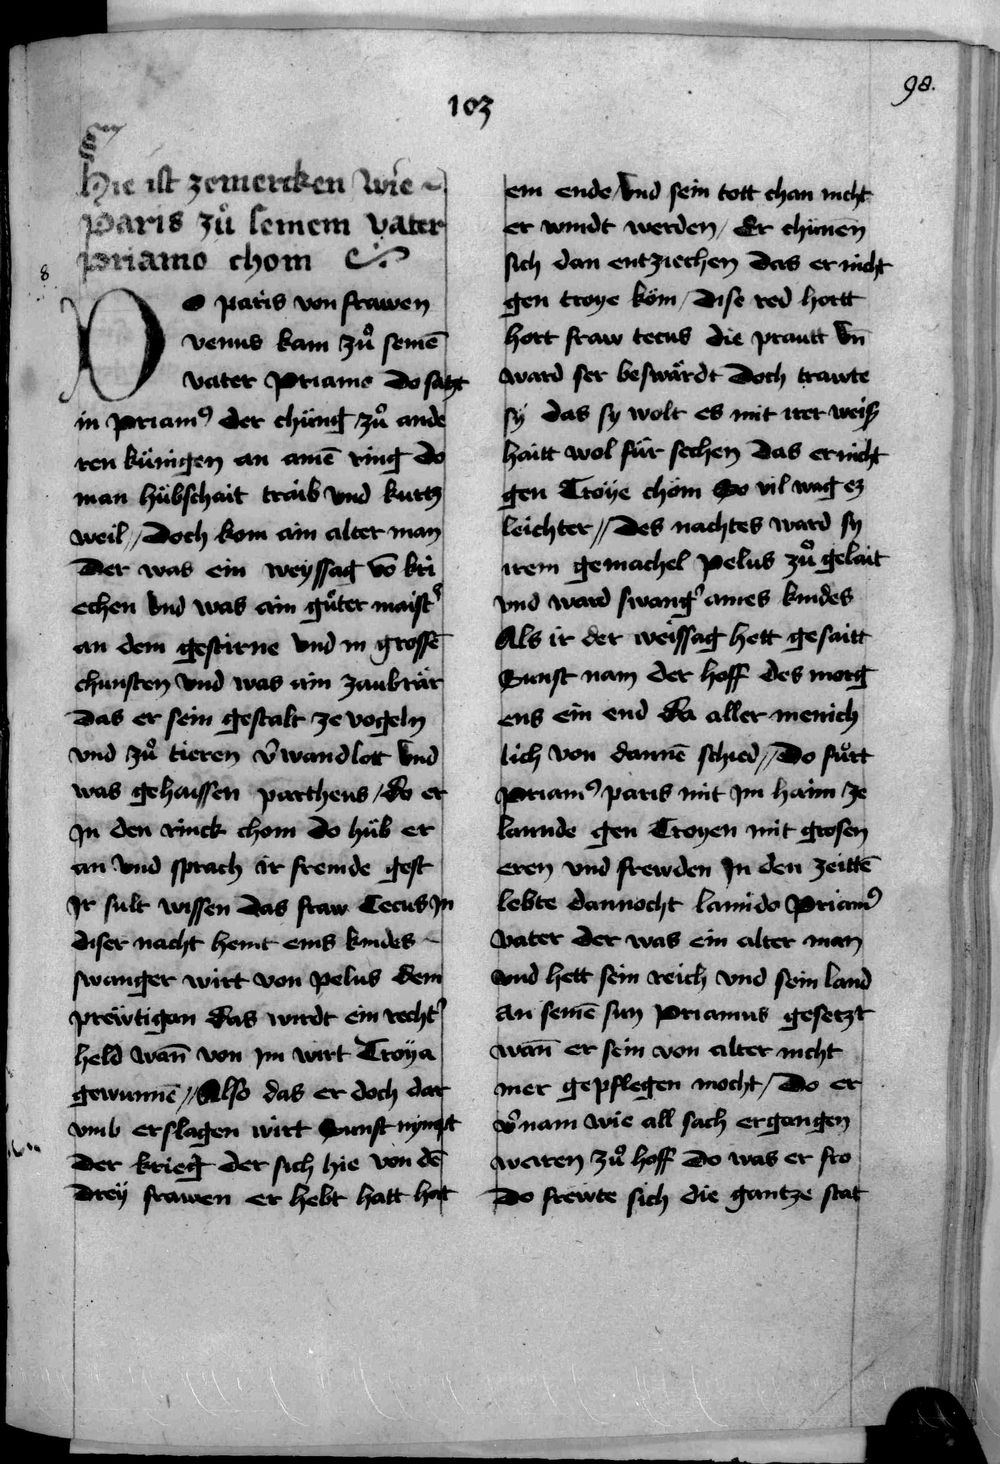 98.
103
Hie ist zemercken wie
Paris zů seinem vater
Priamo chom
8
Do paris von frawen
venus kam zů seinē
vater Priamo Do satzt
in Priamꝰ der chünig zů ande
ren künigen an ainē ring do
man hübschait traib vnd kurtz
weil // Doch kom ain alter man
Der was ein weyssag vō kri
echen vnd was ain gůter maistˀ
an dem gestirne vnd in grossē
chunsten vnd was ain zaubrär
das er sein gestalt ze vogeln
vnd zů tieren vˀwandlott vnd
was gehaissen partheus / do er
In den rinck chom do hüb er
an vnd sprach ir fremde gest
Ir sult wissen das fraw Tecus In
diser nacht heint eins kindes
swanger wirt von pelus dem
prëwtigan das wirdt ein rechtˀ
held wañ von im wirt Troÿa
gewunnē // Also das er doch dar
vmb erslagen wirt Sunst nympt
der krieg der sich hie von dē
dreÿ frawen er hebt hatt hat
ein ende / vnd sein tott chan nicht
er windt werden / Er chünnen
sich dan entziechen das er nicht
gen troye köm / Dise red hortt
hort fraw tecus die prautt vn̄
ward ser beswärdt Doch trawte
sÿ das sy wolt es mit irer weiß
haitt wol für sechen das er nicht
gen Troÿe chöm So vil wag ez
leichter // Des nachtes ward sy
irem gemachel Pelus zů gelait
vnd ward swangˀ aines kindes
Als ir der weissag hett gesaitt
Sunst nam der hoff des morg
ens ein end da aller menich
lich von dannē schied // Do fůrt
Priamꝰ paris mit im haim ze
lannde gen Troyen mit grosen
eren vnd frewden In den zeittē
lebte dannocht lamido Priamꝰ
vater der was ein alter man
vnd hett sein reich vnd sein land
an seinē sun Priamus gesetzt
wañ er sein von alter nicht
mer gepflegen mocht / Do er
vˀnam wie all sach ergangen
weren zů hoff do was er fro
Do frewte sich die gantze stat